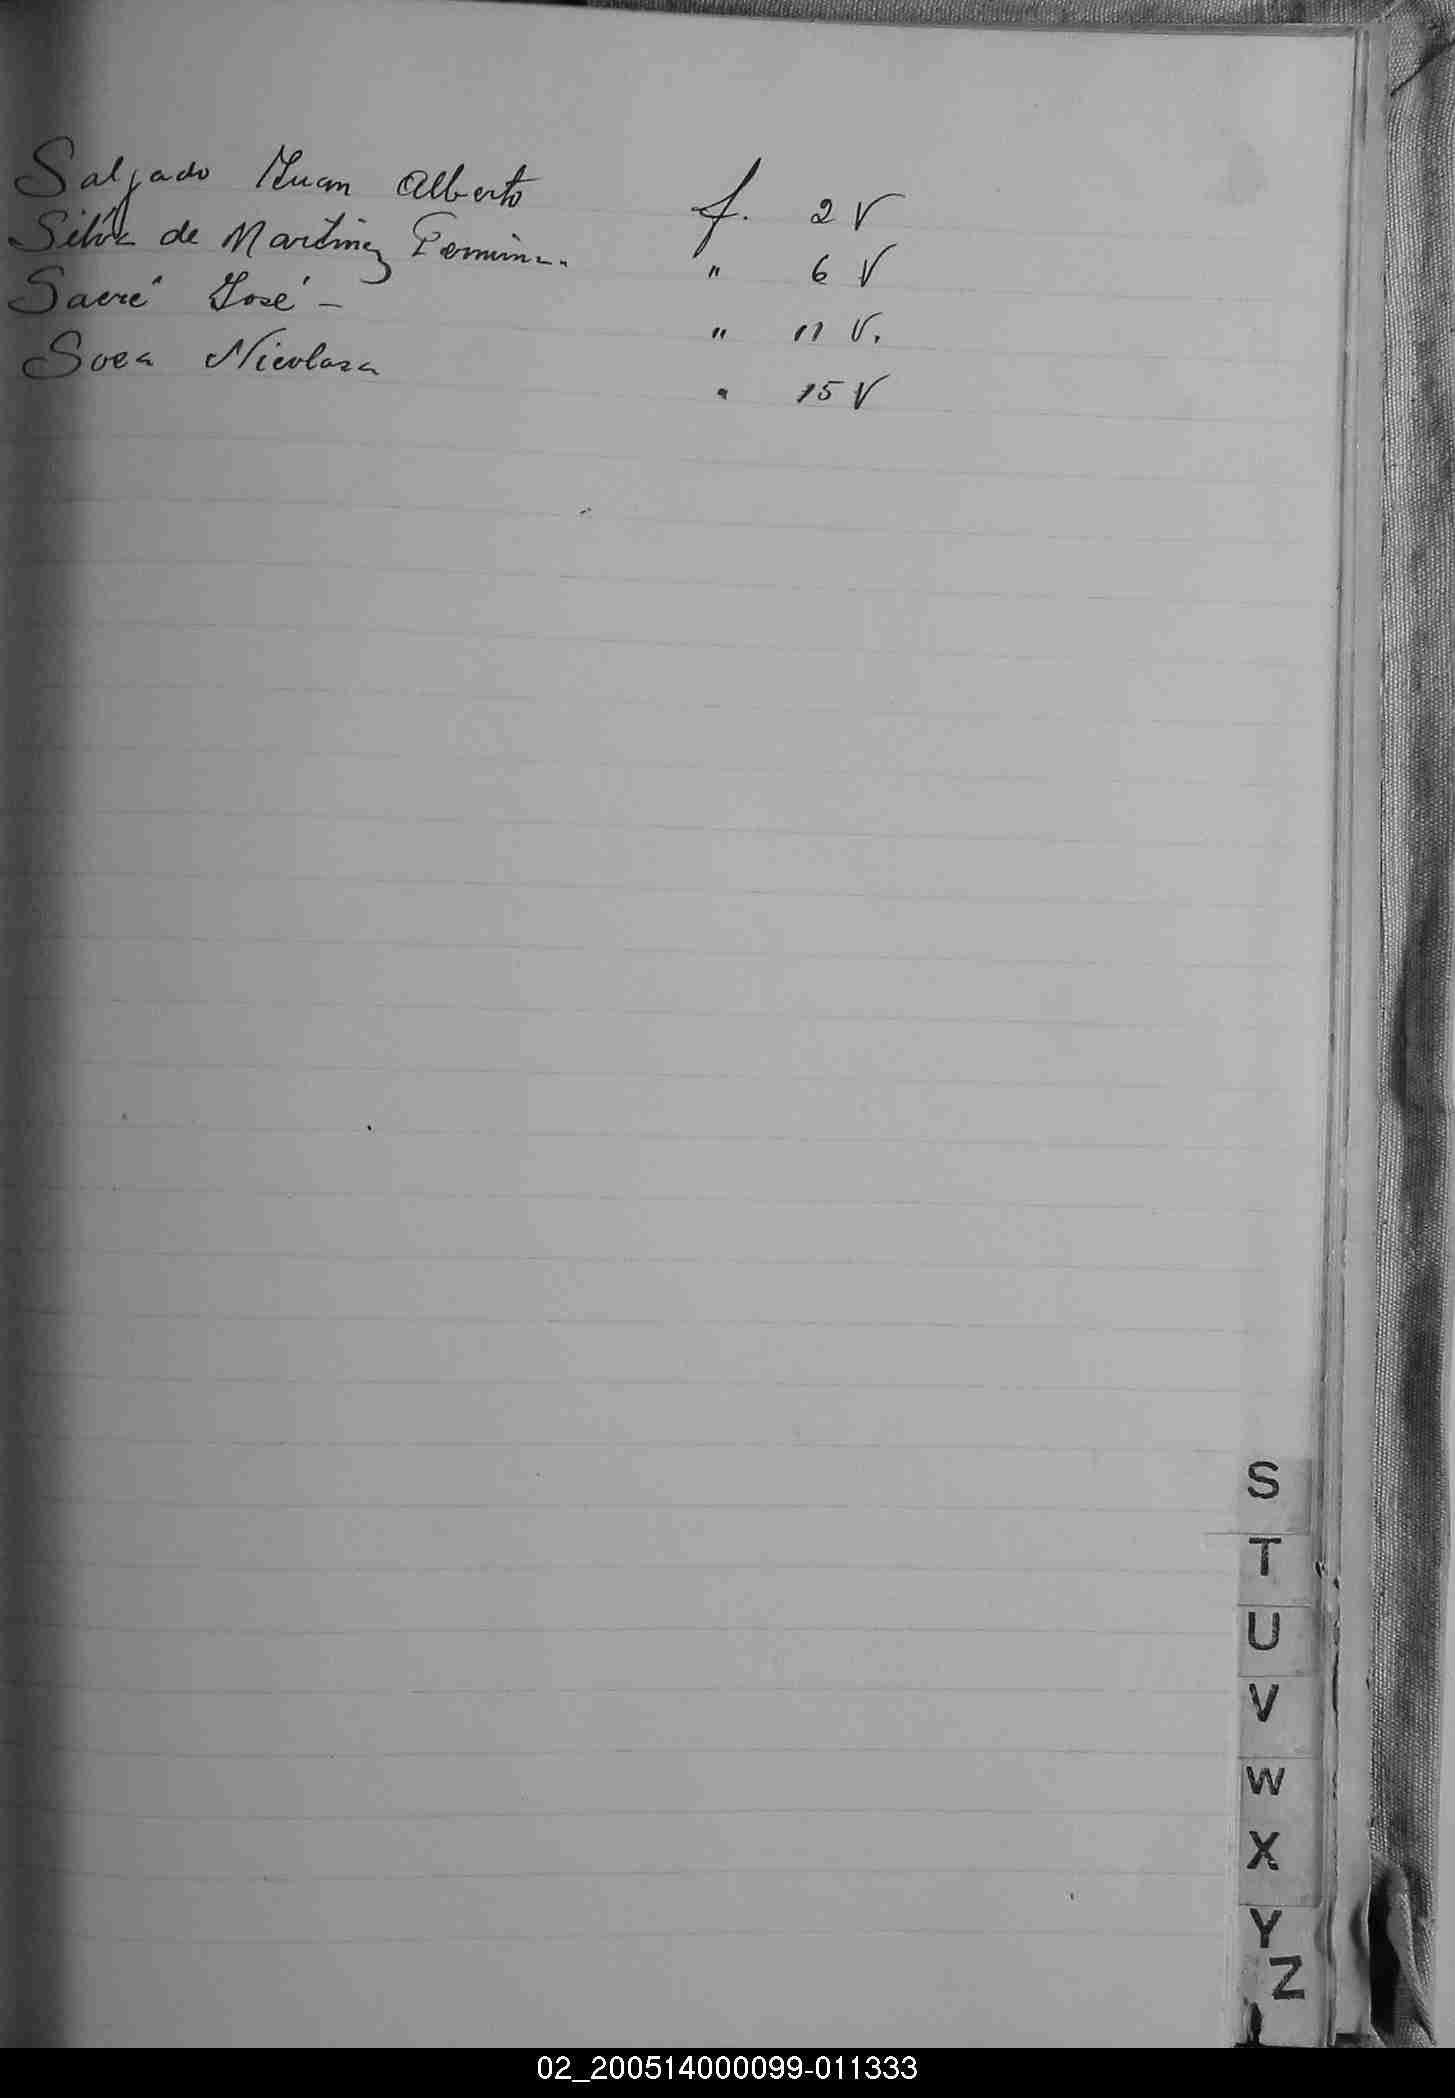 Salgado Juan Alberto f. 2 V
Silva de Martinez " 6 V
Sacré José - " 11 V.
Sosa Nicolasa " 15 V
S
T
U
V
W
X
Y
Z
02_200514000099-011333